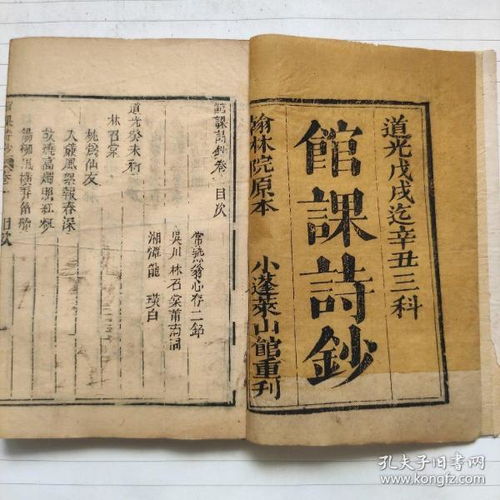 道光戊戌迄辛丑三科
館課詩鈔
翰林院原本
小蓬萊山館重刊
館課詩鈔卷一目次
常熟翁心存二銘
吳川林召棠芾南同
湘潭龍瑛白
道光癸未科
林召棠
桃為仙友
入簾風絮報春深
故燒高燭照紅粧
目次
孔夫子旧书网
www.kongfz.com